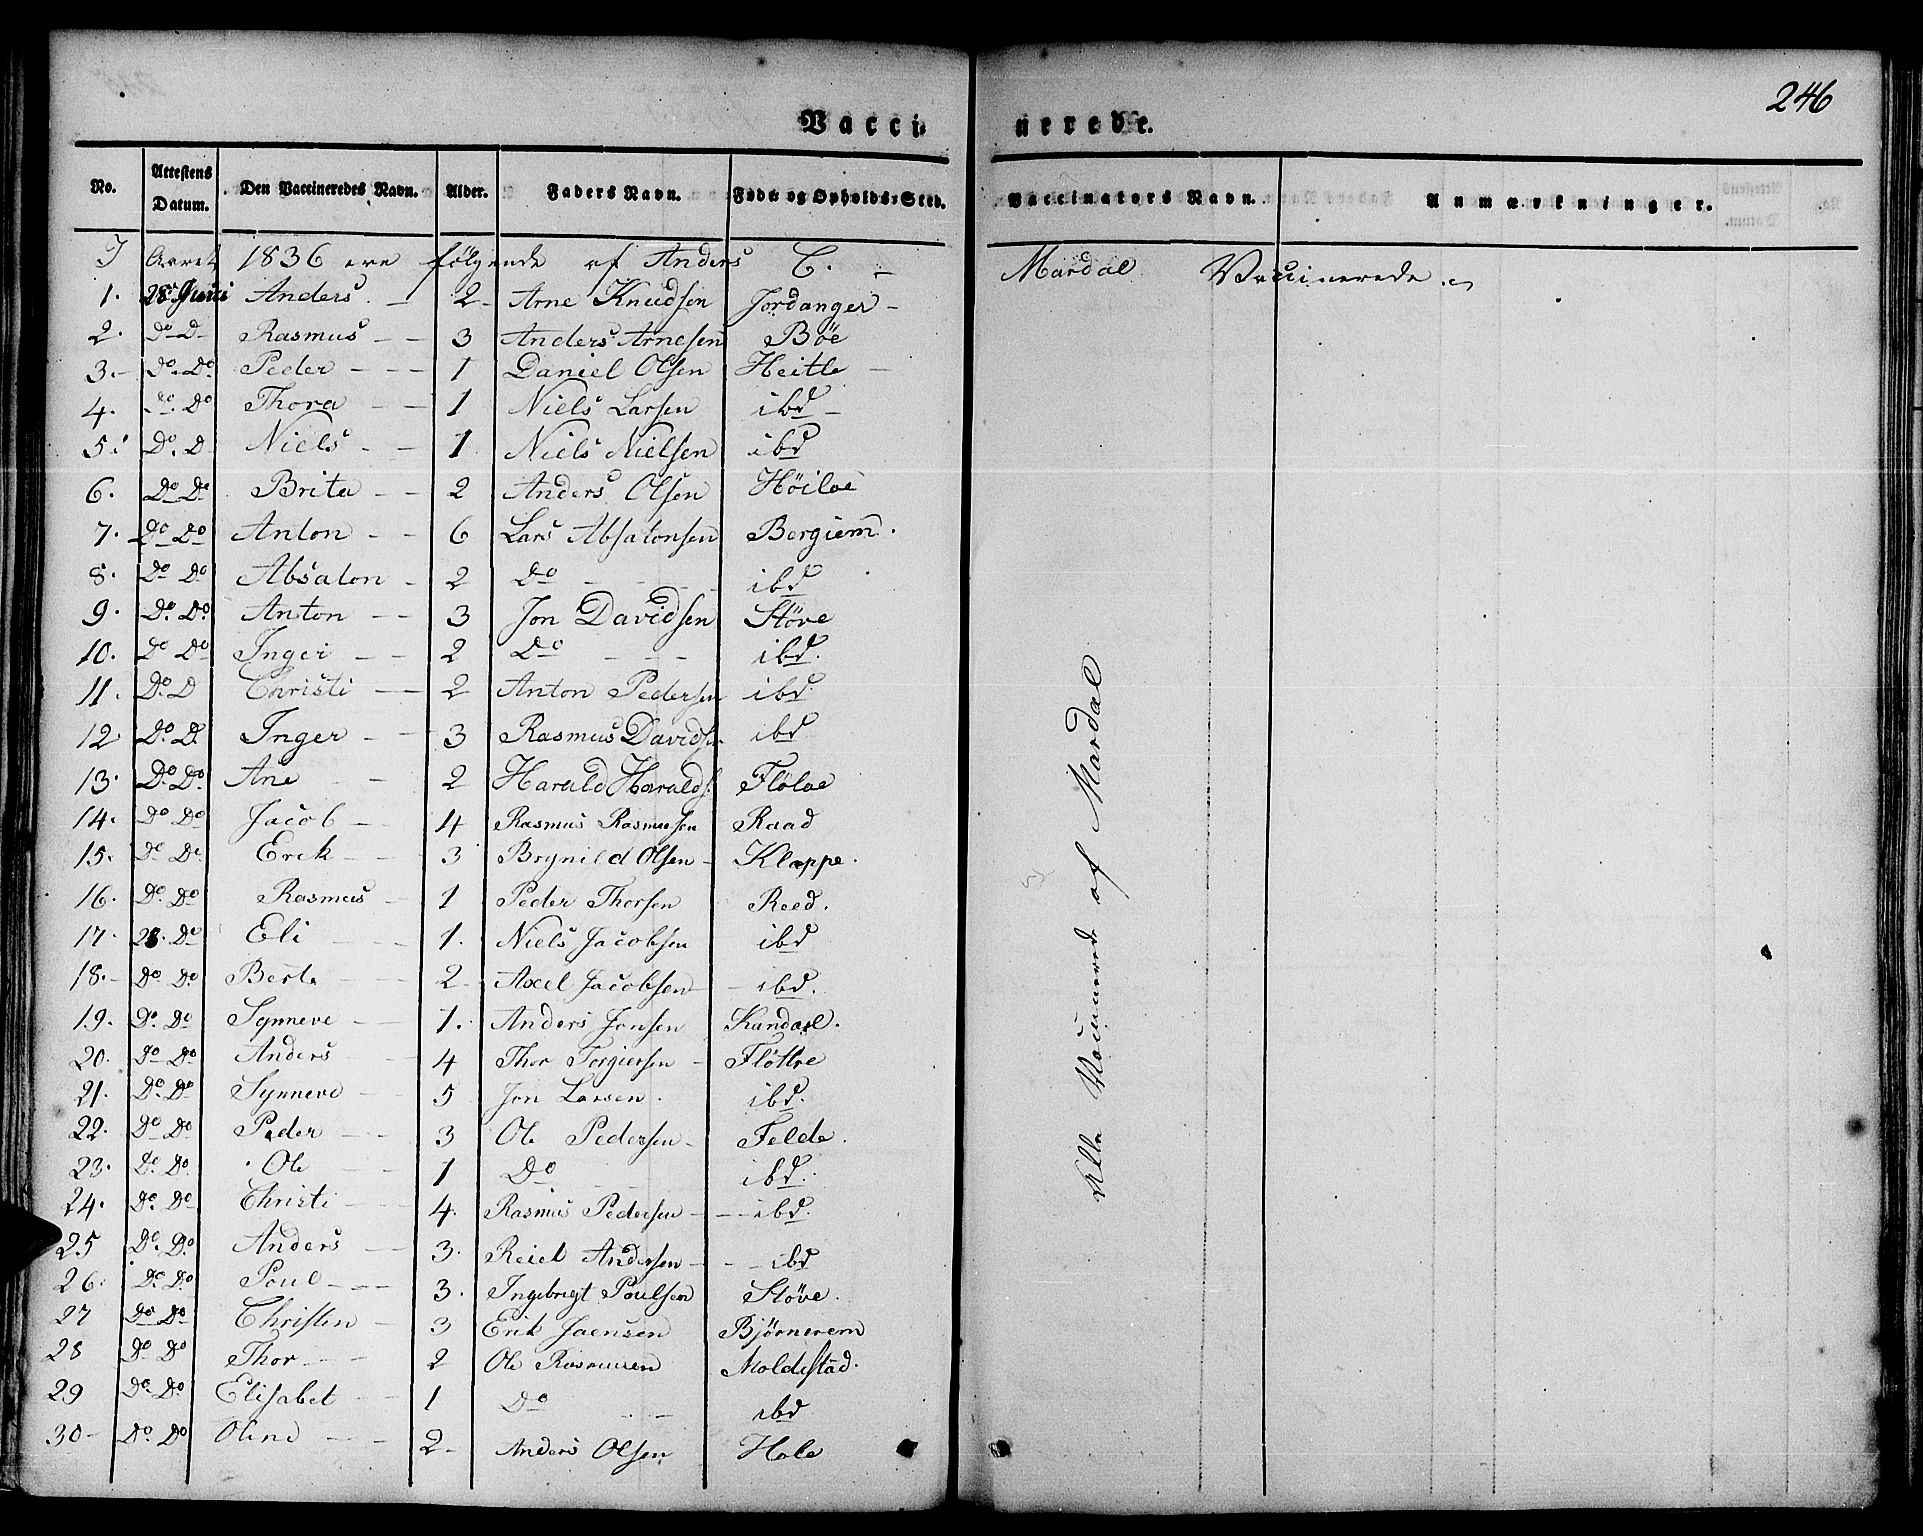 246
Vaccinerede.
No. Attestens Datum. Den Vaccineredes Navn. Alder. Faders Navn. Føde og Opholds-Sted. Vaccinators Navn. Anmærkninger.
I Aaret 1836 ere følgende af Anders C. Mardal Vaccinerede.
1. 28 Juni Anders. 2 Arne Knudsen Jordanger
2. Do D Rasmus 3 Anders Arnesen Böe
3. Do Do Peder 1 Daniel Olsen Heitle
4. Do Do Thora 1 Niels Larsen ibd
5. Do D Niels 1 Niels Nielsen ibd
6. Do Do Brita 2 Anders Olsen Höiloe
7. Do Do Anton 6 Lars Absalonsen Bergiem.
8. Do Do Absalon 2 Do ibd
9. Do Do Anton 3 Jon Davidsen Störe
10. Do Do Inger 2 Do ibd.
11. Do D Christi 2 Anton Pedersen ibd
12. Do D Inger 3 Rasmus Davids. ibd
13. Do Do Ane 2 Harald Haralds. Flöloe
14. Do Do Jacob 4 Rasmus Rasmusen Raad
15. Do Do Erek 3 Brynild Olsen Kloppe.
16. Do Do Rasmus 1 Peder Thorsen Reed.
17. 28. Do Eli 1. Niels Jacobsen ibd
18. Do Do Berte 2 Axel Jacobsen ibd.
19. Do Do Synneve 1. Anders Jonsen Kandal.
20. Do Do Anders 4 Thor Torgiersen Flöttre
21. Do Do Synneve 5 Jon Larsen. ibd.
22. Do Do Peder 3 Ole Pedersen Felde.
23. Do Do Ole 1 Do ibd.
24. Do Do Christi 4. Rasmus Pedersen ibd.
25 Do Do Anders 3. Reiel Andersen ibd
26. Do Do Poul 3. Ingebregt Poulsen Störe.
27 Do Do Christen 3 Erik Jaensen Björnerem
28 Do Do Thor 2 Ole Rasmusen Moldestad.
29 Do Do Elisabet 1 Do ibd
30 Do Do Oline 2 Anders Olsen Hole
Alle Vaccinerede af Mardal